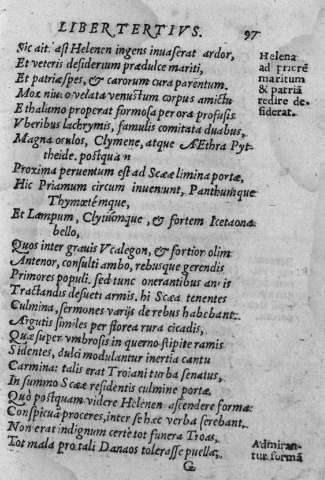 LIBER TERTIVS. 97
Sic ait. ast Helenen ingens inuaserat ardor,
Et veteris desiderium prædulce mariti,
Et patriæspes, & carorum cura parentum.
Mox niueo velata venustum corpus amictu
E thalamo properat formosa per ora profusis
Vberibus lachrymis, famulis comitata duabus,
Magna oculos, Clymene, atque AEthra Pyt-
theide. postquàm
Proxima peruentum est ad Scææ limina portæ,
Hic Priamum circum inueniunt, Panthumque
Thymœtémque,
Et Lampum, Clytiúmque, & fortem Icetaona
bello,
Quos inter grauis Vcalegon, & fortior olim
Antenor, consulti ambo, rebusque gerendis
Primores populi. sed tunc onerantibus annis
Tractandis desueti armis. hi Scæa tenentes
Culmina, sermones varijs de rebus habebant.
Argutis similes per florea rura cicadis,
Quæ super vmbrosis in querno stipite ramis
Sidentes, dulci modulantur inertia cantu
Carmina: talis erat Troiani turba senatus,
In summo Scææ residentis culmine portæ.
Quò postquam videre Helenen ascendere forma
Conspicua proceres, inter se hæc verba serebant.
Non erat indignum certè tot funera Troas,
Tot mala pro tali Danaos tolerasse puella,
G
Helena
ad priorē
maritum
& patriā
redire de-
siderat.
Admiran-
tur formā